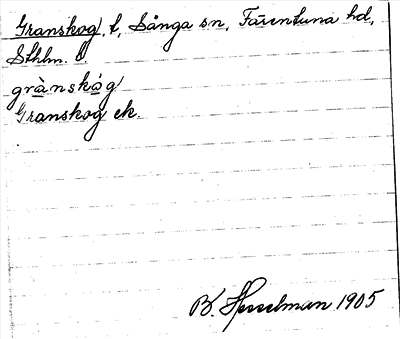 Granskog, t, Sånga sn, Färentuna hd,
Sthlm. l.
grànskóg
Granskog ek.
B. Hesselman 1905